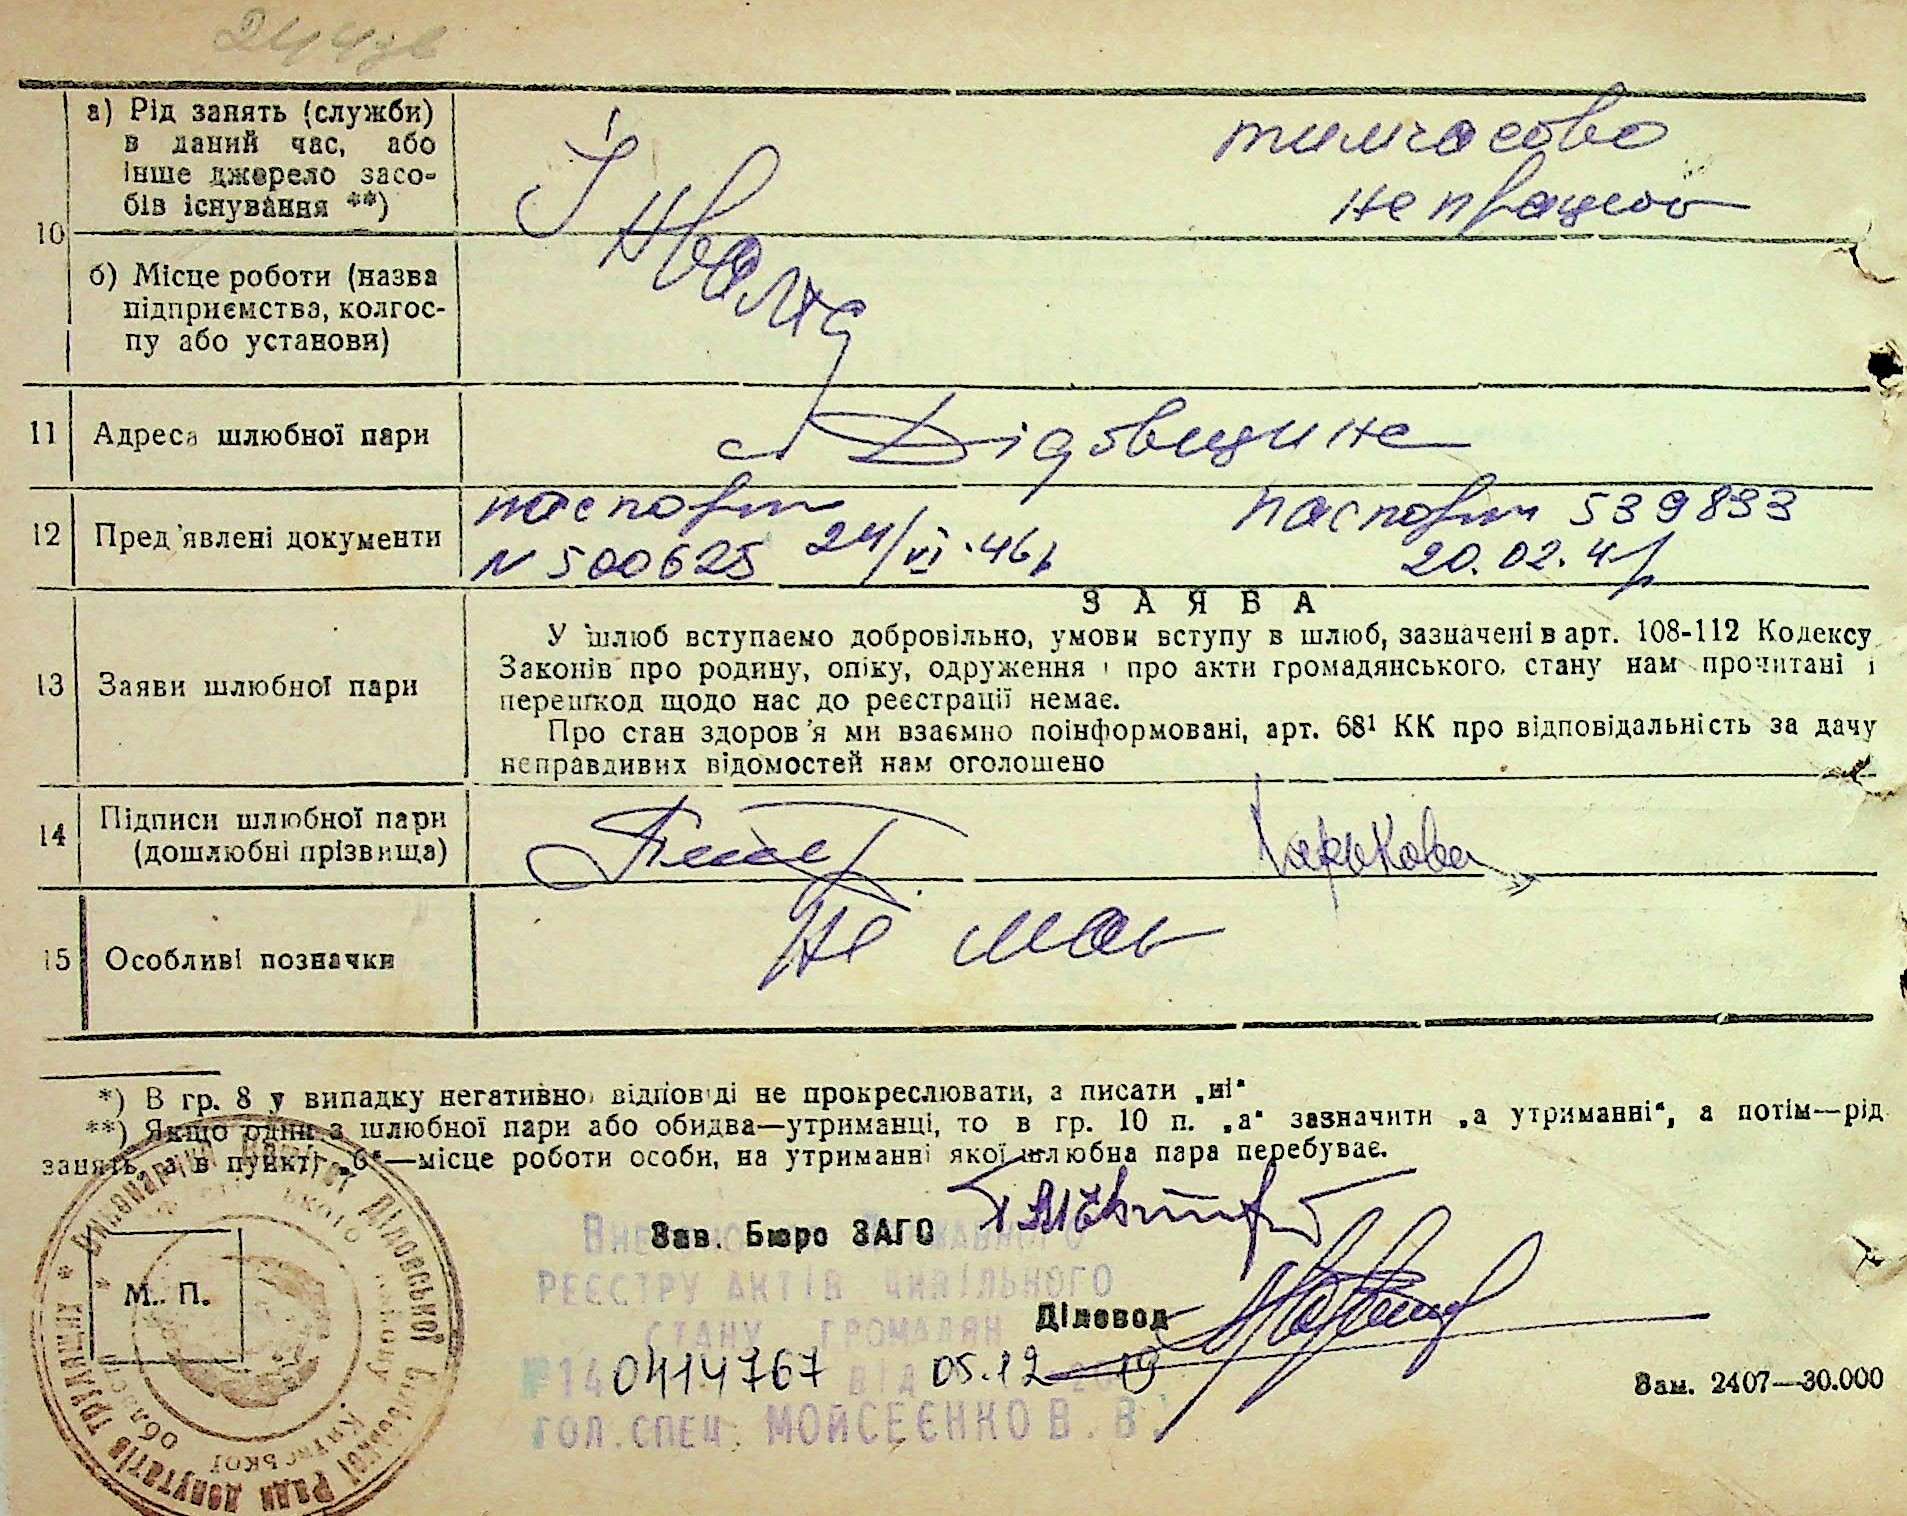 244зв
а) Рід занять (служби)
в даний час, або
інше джерело засо-
бів існування **)
Інвалід
тимчасово
не працює
10
б) Місце роботи (назва
підприємства, колгос-
пу або установи)
11 Адреса шлюбної пари
с Дідовщина
12 Пред'явлені документи
паспорт
N 500625 24/VI.46р
паспорт 539833
20.02.41р
ЗАЯВА
13 Заяви шлюбної пари
У шлюб вступаємо добровільно, умови вступу в шлюб, зазначені в арт. 108-112 Кодексу
Законів про родину, опіку, одруження і про акти громадянського, стану нам прочитані і
перешкод щодо нас до реєстрації немає.
Про стан здоров'я ми взаємно поінформовані, арт. 68¹ КК про відповідальність за дачу
неправдивих відомостей нам оголошено
14 Підписи шлюбної пари
(дошлюбні прізвища)
Харькова
15 Особливі позначки
Не має
*) В гр. 8 у випадку негативної відповіді не прокреслювати, а писати „ні“
**) Якщо один з шлюбної пари або обидва—утриманці, то в гр. 10 п. „а“ зазначити „а утриманні“, а потім—рід
занять, а в пункті „б“—місце роботи особи, на утриманні якої шлюбна пара перебуває.
Зав. Бюро ЗАГС
Діловод
М. П.
Виконавчий Комітет Дідовської Сільської Ради депутатів трудящих
району Київської області
Внесено до Державного
реєстру актів цивільного
стану громадян
№14 0414767 від 05.12 2019
гол.спец. Мойсеєнко В.В.
Зам. 2407—30.000